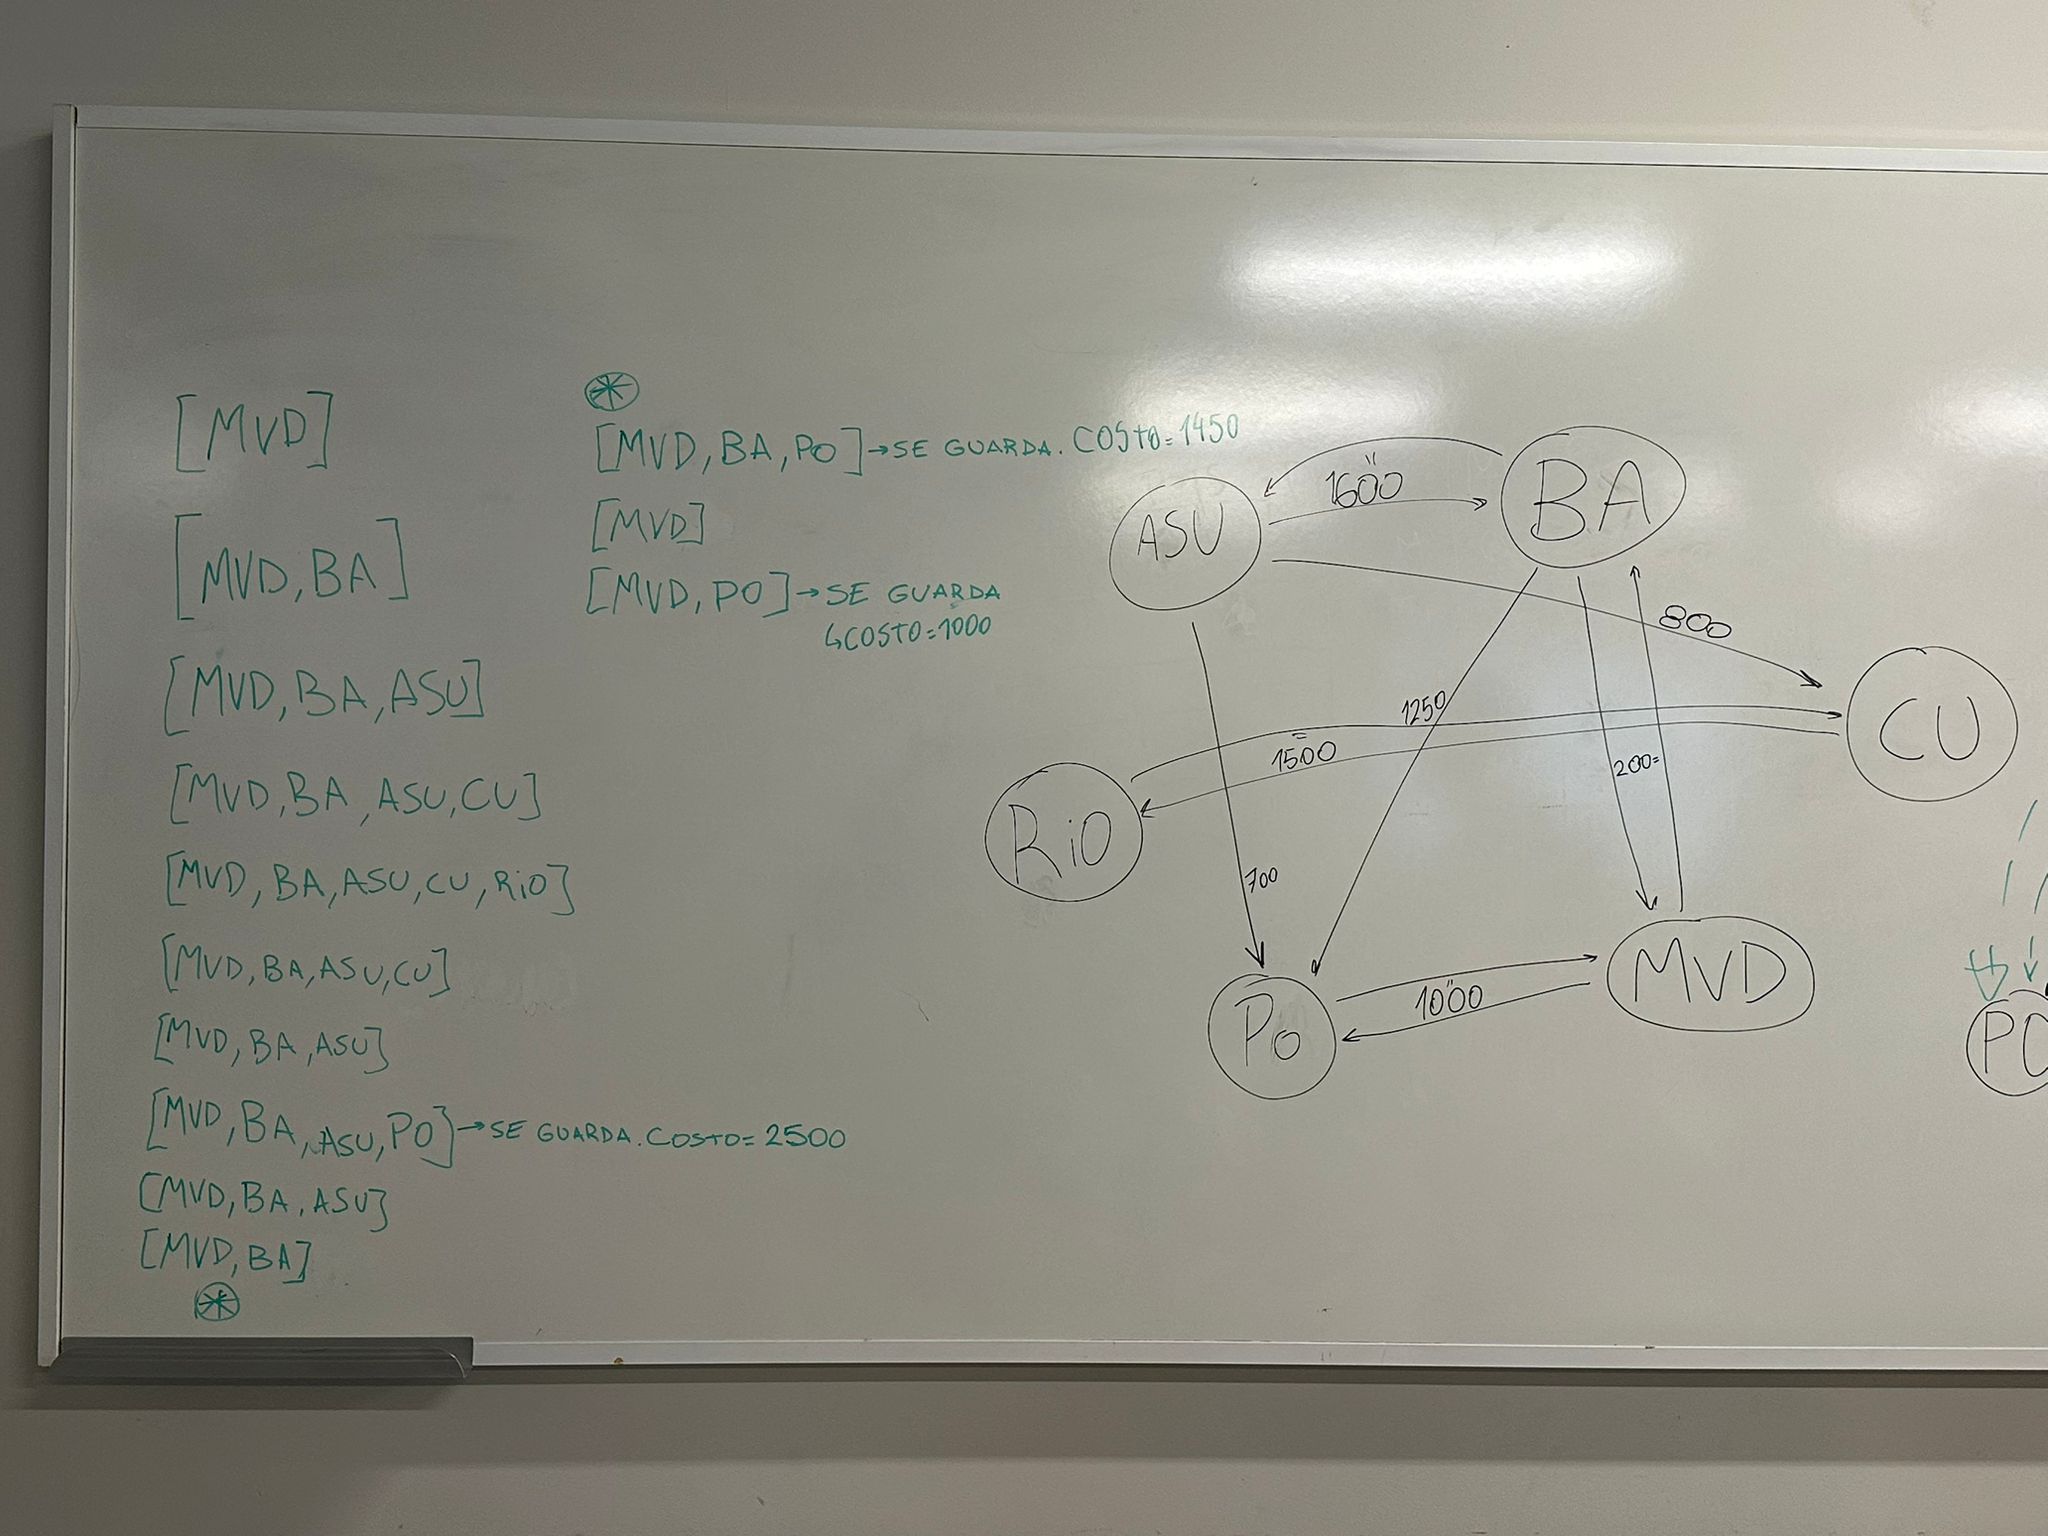 [MVD]
[MVD, BA]
[MVD, BA, ASU]
[MVD, BA, ASU, CU]
[MVD, BA, ASU, CU, RiO]
[MVD, BA, ASU, CU]
[MVD, BA, ASU]
[MVD, BA, ASU, PO] → SE GUARDA. COSTO = 2500
[MVD, BA, ASU]
[MVD, BA]
[MVD, BA, PO] → SE GUARDA. COSTO = 1450
[MVD]
[MVD, PO] → SE GUARDA
↳ COSTO = 1000
ASU
1600
BA
800
CU
1250
1500
RiO
200
700
PO
1000
MVD
PO